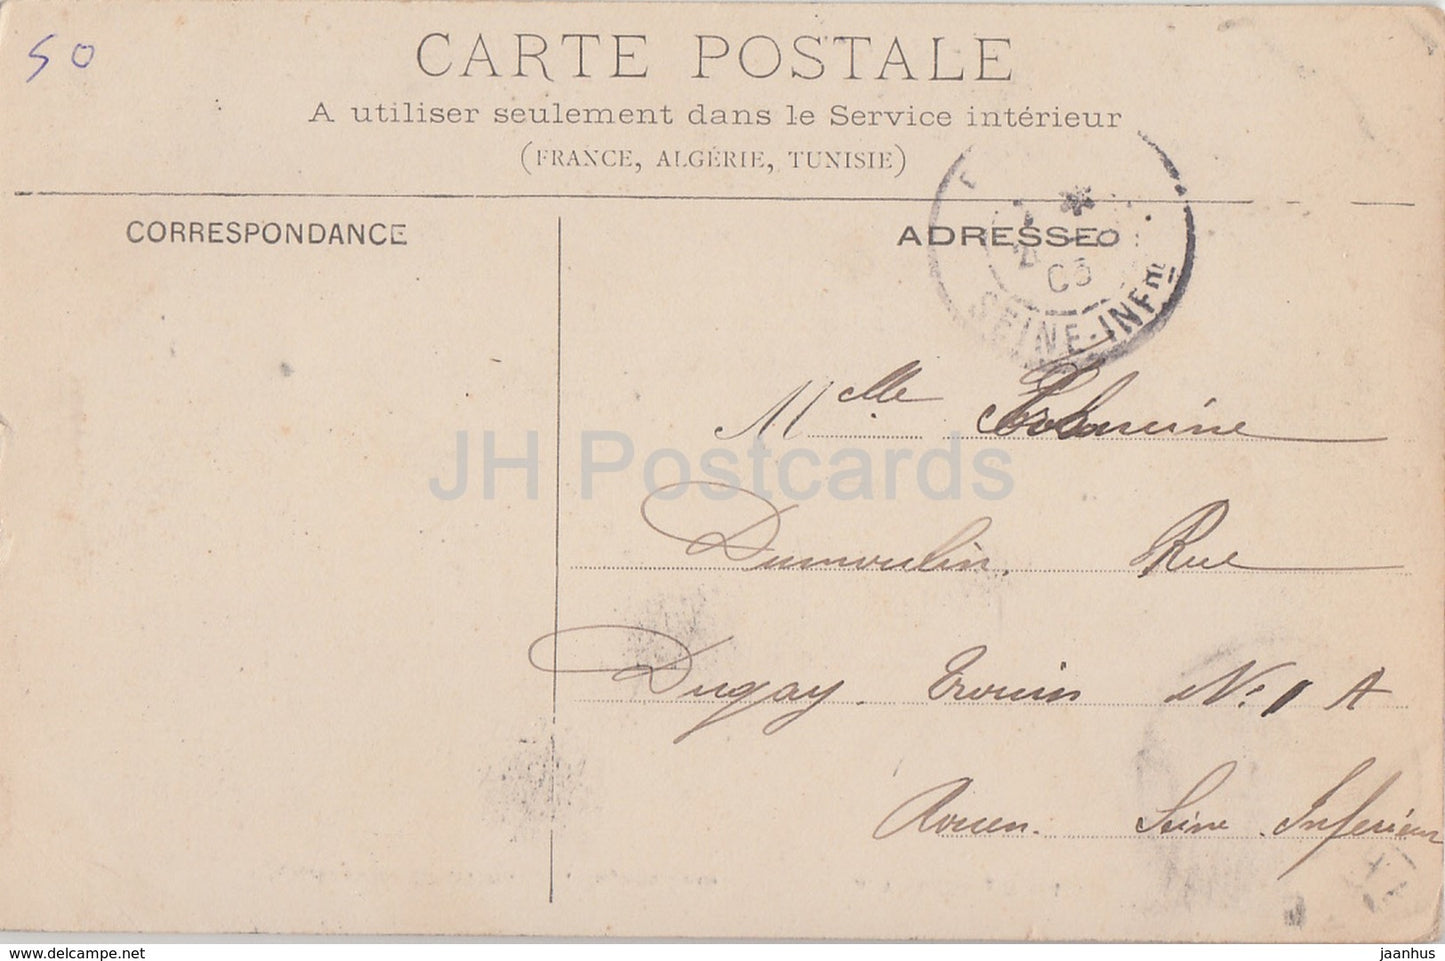 50
CARTE POSTALE
A utiliser seulement dans le Service intérieur
(FRANCE, ALGÉRIE, TUNISIE)
CORRESPONDANCE
ADRESSE
SEINE-INFRE
Melle
JH Postcards
Dumoulin, Rue
Dugay. Trouin No 1 A
Rouen. Seine. Inferieur
delcampe.net
jaanhus